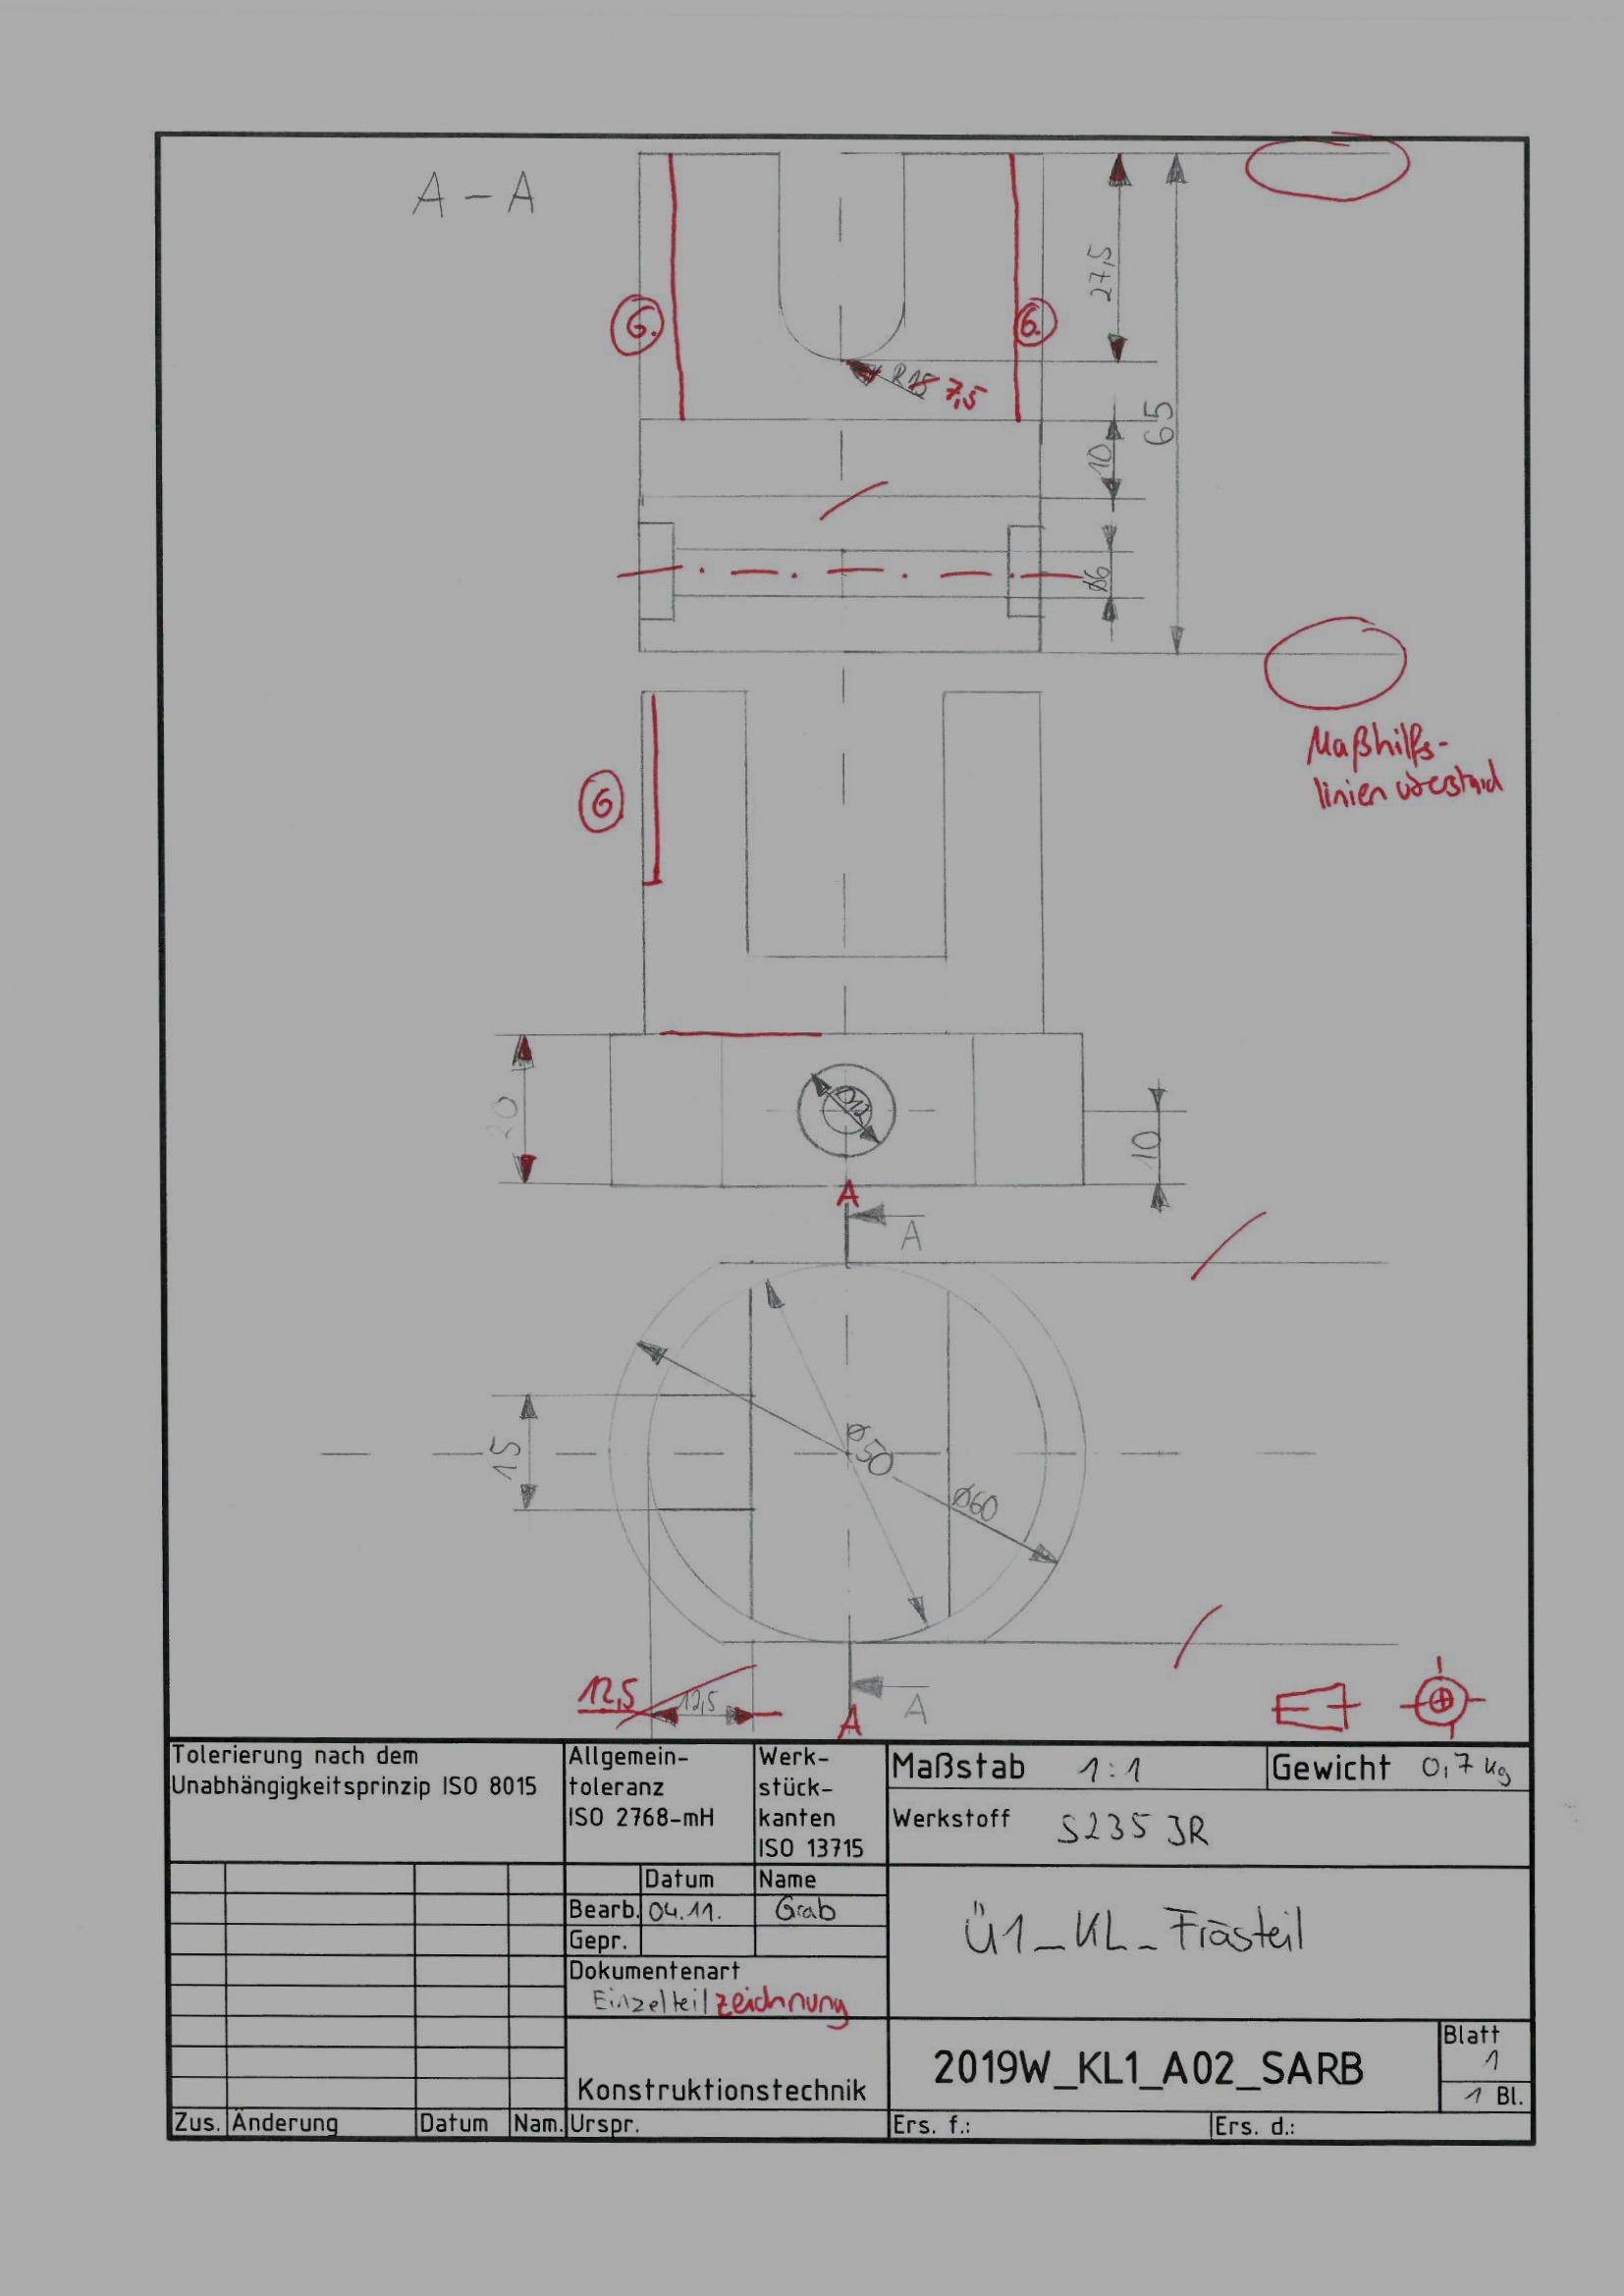 A – A
27,5
6.
6.
R15 7,5
65
10
ø6
Maßhilfs-
linienüberstand
6
20
ø12
10
A
A
15
ø50
ø60
12,5
12,5
A
A
Tolerierung nach dem
Unabhängigkeitsprinzip ISO 8015
Allgemein-
toleranz
ISO 2768-mH
Werk-
stück-
kanten
ISO 13715
Maßstab 1:1
Gewicht 0,7 kg
Werkstoff S235 JR
Datum Name
Bearb. 04.11. Grab
Gepr.
Dokumentenart
Einzelteilzeichnung
Ü1_KL_Frästeil
Konstruktionstechnik
2019W_KL1_A02_SARB
Blatt
1
1 Bl.
Zus. Änderung Datum Nam. Urspr. Ers. f.: Ers. d.: